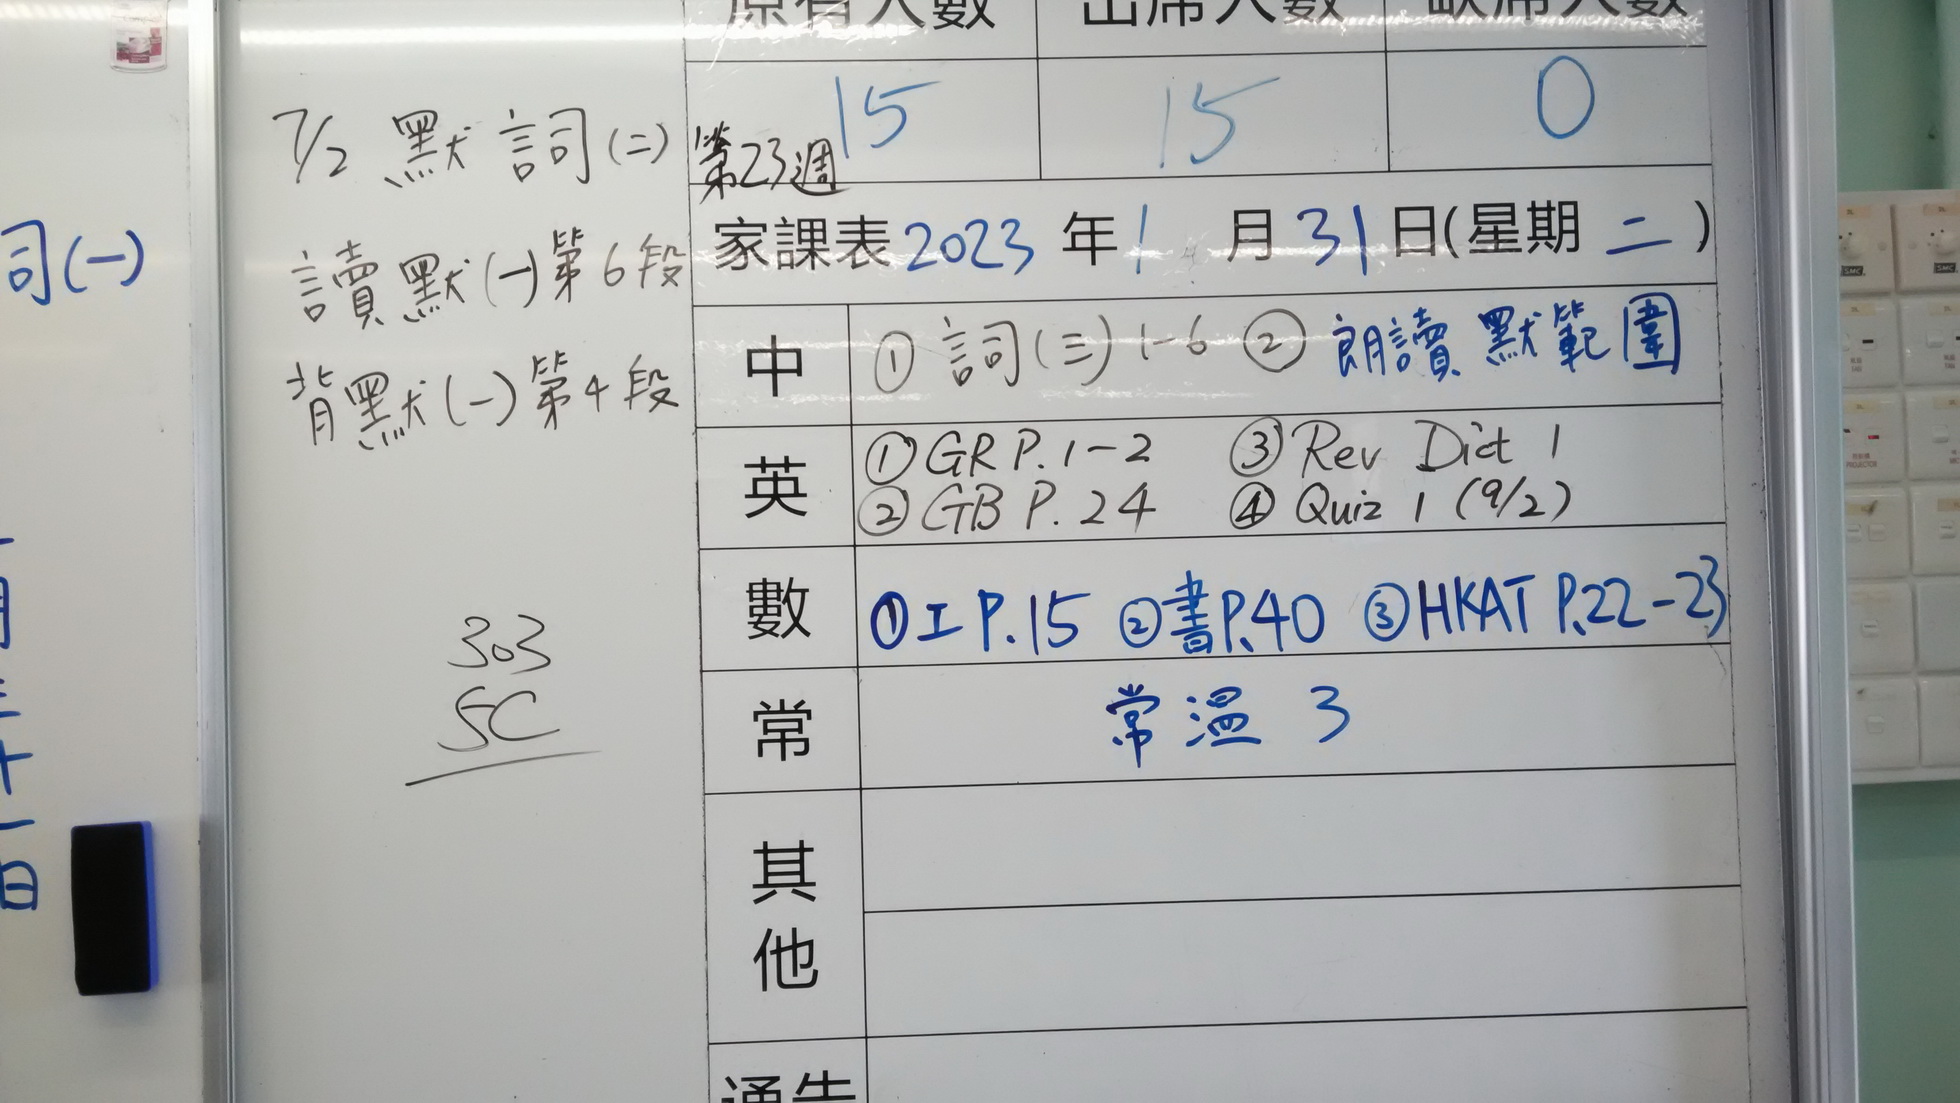 原有人數 出席人數 缺席人數
15 15 0
第23週
家課表2023年1月31日(星期二)
中 ①詞(三)1-6 ②朗讀默範圍
英 ①GR P.1-2 ③Rev Dict 1
②GB P.24 ④Quiz 1 (9/2)
數 ①工P.15 ②書P.40 ③HKAT P.22-23
常 常溫 3
其他
通告
7/2 默 詞(二)
讀默(一)第6段
背默(一)第4段
303
5C
詞(一)
月三十一日
PROJECTOR
SMC
SMC